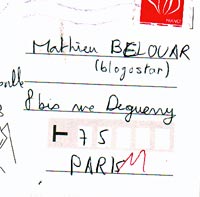 Mathieu BELOUAR
(blogostar)
8 bis rue Deguerry
75
PARIS